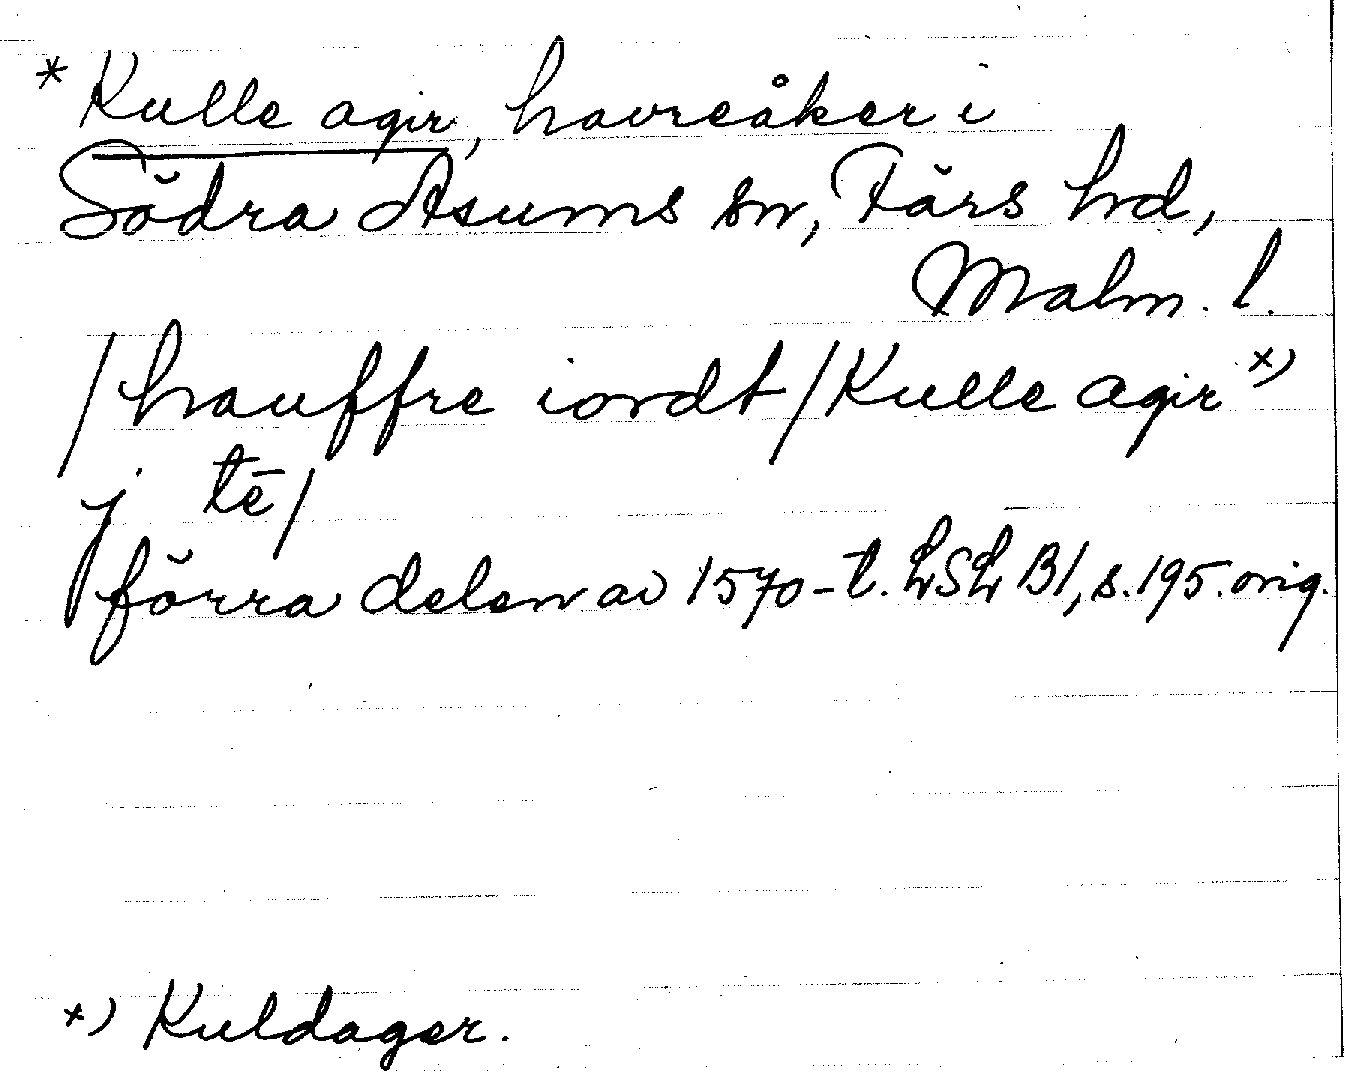 * Kulle agir, havreåker i
Södra Åsums sn, Färs hd,
Malm. l.
/hauffre iordt/Kulle agir *)
j tē/
förra delen av 1570-t. LSL B1, s. 195. orig.
*) Kuldager.